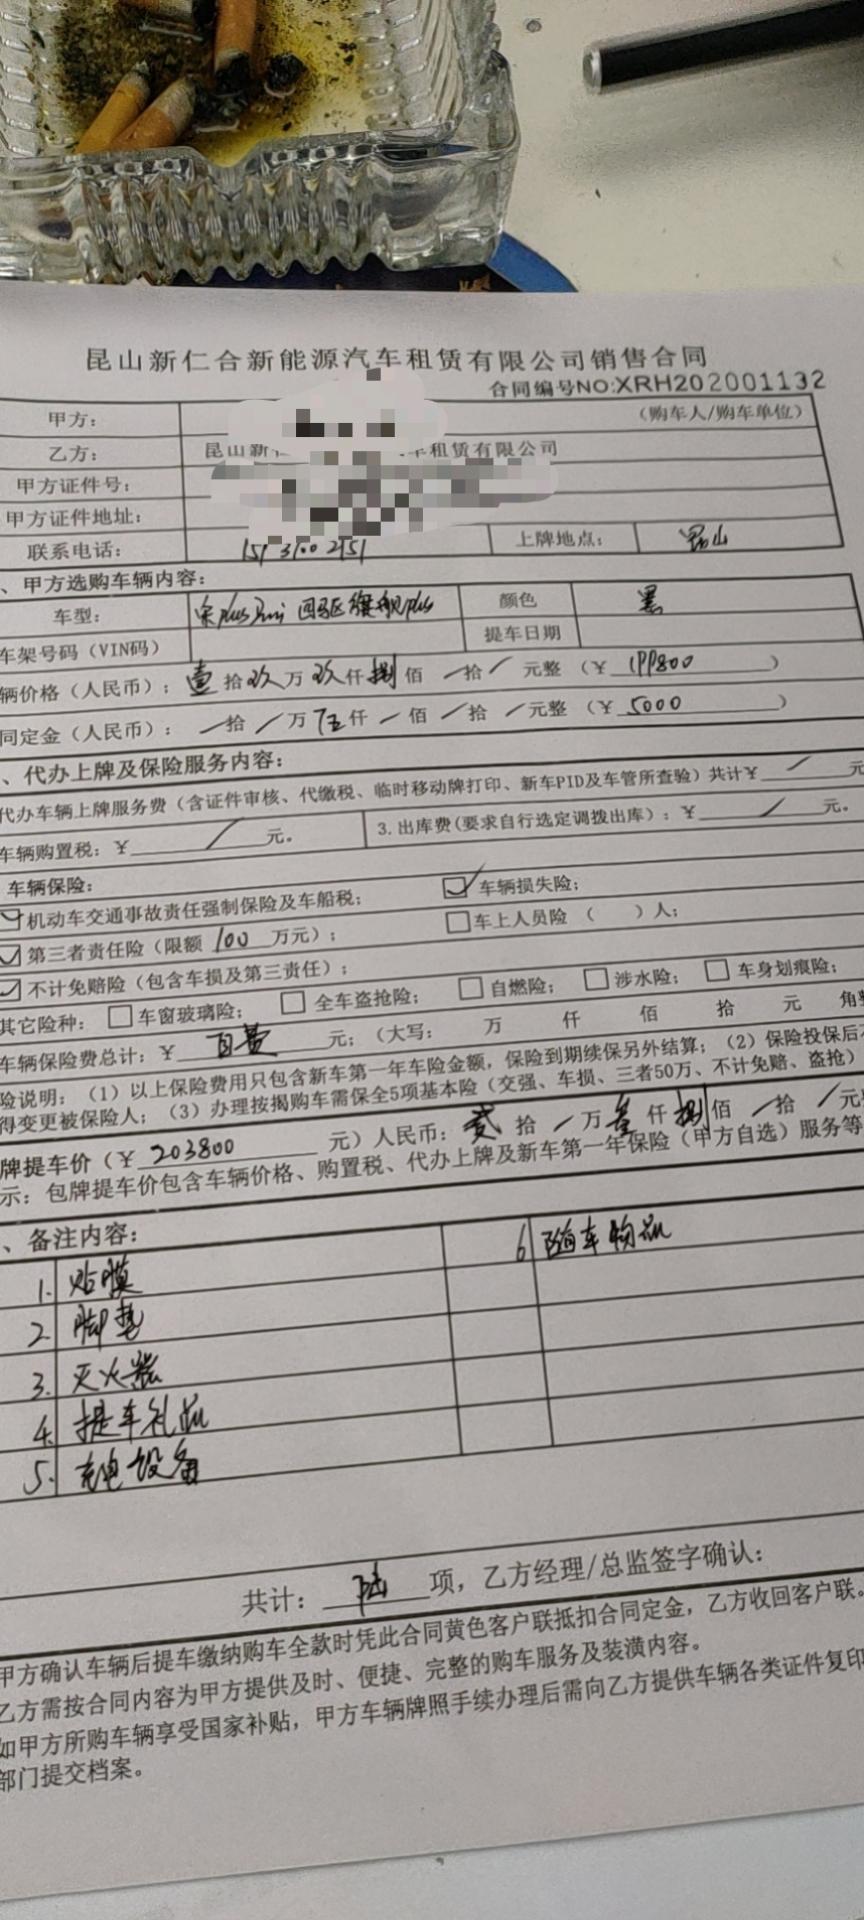 昆山新仁合新能源汽车租赁有限公司销售合同
合同编号NO:XRH202001132
甲方： （购车人/购车单位）
乙方： 昆山新 车租赁有限公司
甲方证件号：
甲方证件地址：
联系电话： 15131002151 上牌地点： 昆山
、甲方选购车辆内容：
车型： 宋plus Dmi 四驱旗舰plus 颜色 黑
车架号码（VIN码） 提车日期
辆价格（人民币）：壹拾玖万玖仟捌佰/拾/元整（￥199800）
同定金（人民币）：/拾/万伍仟/佰/拾/元整（￥5000）
、代办上牌及保险服务内容：
代办车辆上牌服务费（含证件审核、代缴税、临时移动牌打印、新车PID及车管所查验）共计￥/元
车辆购置税：￥/元。 3.出库费(要求自行选定调拨出库)：￥/元。
车辆保险：
机动车交通事故责任强制保险及车船税； ☑车辆损失险；
☑第三者责任险（限额100万元）； □车上人员险（ ）人；
☑不计免赔险（包含车损及第三责任）；
其它险种： □车窗玻璃险； □全车盗抢险； □自燃险； □涉水险； □车身划痕险；
车辆保险费总计：￥自费元；（大写： 万 仟 佰 拾 元 角整
险说明：（1）以上保险费用只包含新车第一年车险金额，保险到期续保另外结算；（2）保险投保后不
得变更被保险人；（3）办理按揭购车需保全5项基本险（交强、车损、三者50万、不计免赔、盗抢）
牌提车价（￥203800元）人民币：贰拾/万叁仟捌佰/拾/元
示：包牌提车价包含车辆价格、购置税、代办上牌及新车第一年保险（甲方自选）服务等
、备注内容：
1. 贴膜 6 随车物品
2. 脚垫
3. 灭火器
4. 提车礼品
5. 充电设备
共计：陆项，乙方经理/总监签字确认：
甲方确认车辆后提车缴纳购车全款时凭此合同黄色客户联抵扣合同定金，乙方收回客户联。
乙方需按合同内容为甲方提供及时、便捷、完整的购车服务及装潢内容。
如甲方所购车辆享受国家补贴，甲方车辆牌照手续办理后需向乙方提供车辆各类证件复印
部门提交档案。